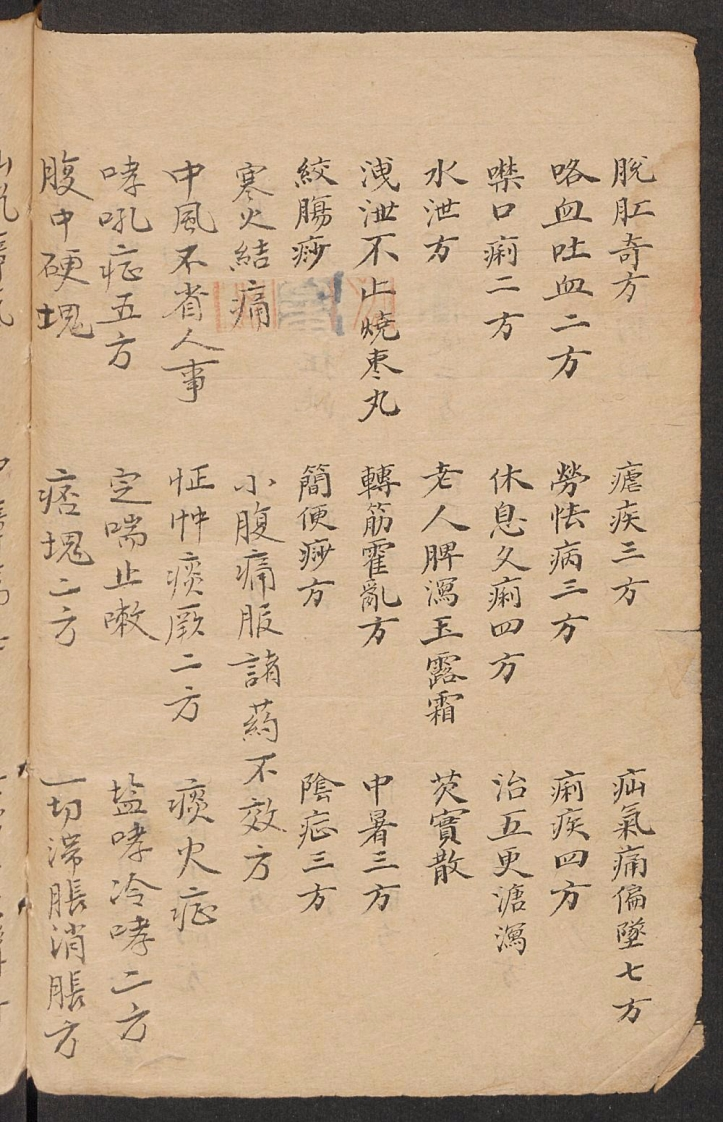 脫肛奇方 瘧疾三方 疝氣痛偏墜七方
咯血吐血二方 勞怯病三方 痢疾四方
噤口痢二方 休息久痢四方 治五更溏瀉
水泄方 老人脾瀉玉露霜 芡實散
洩泄不止燒枣丸 轉筋霍亂方 中暑三方
絞腸痧 簡便痧方 陰症三方
寒火結痛 小腹痛服諸药不效方
中風不省人事 怔忡痰厥二方 痰火症
哮吼症五方 定喘止嗽 盐哮冷哮二方
腹中硬塊 痞塊二方 一切滯脹消脹方